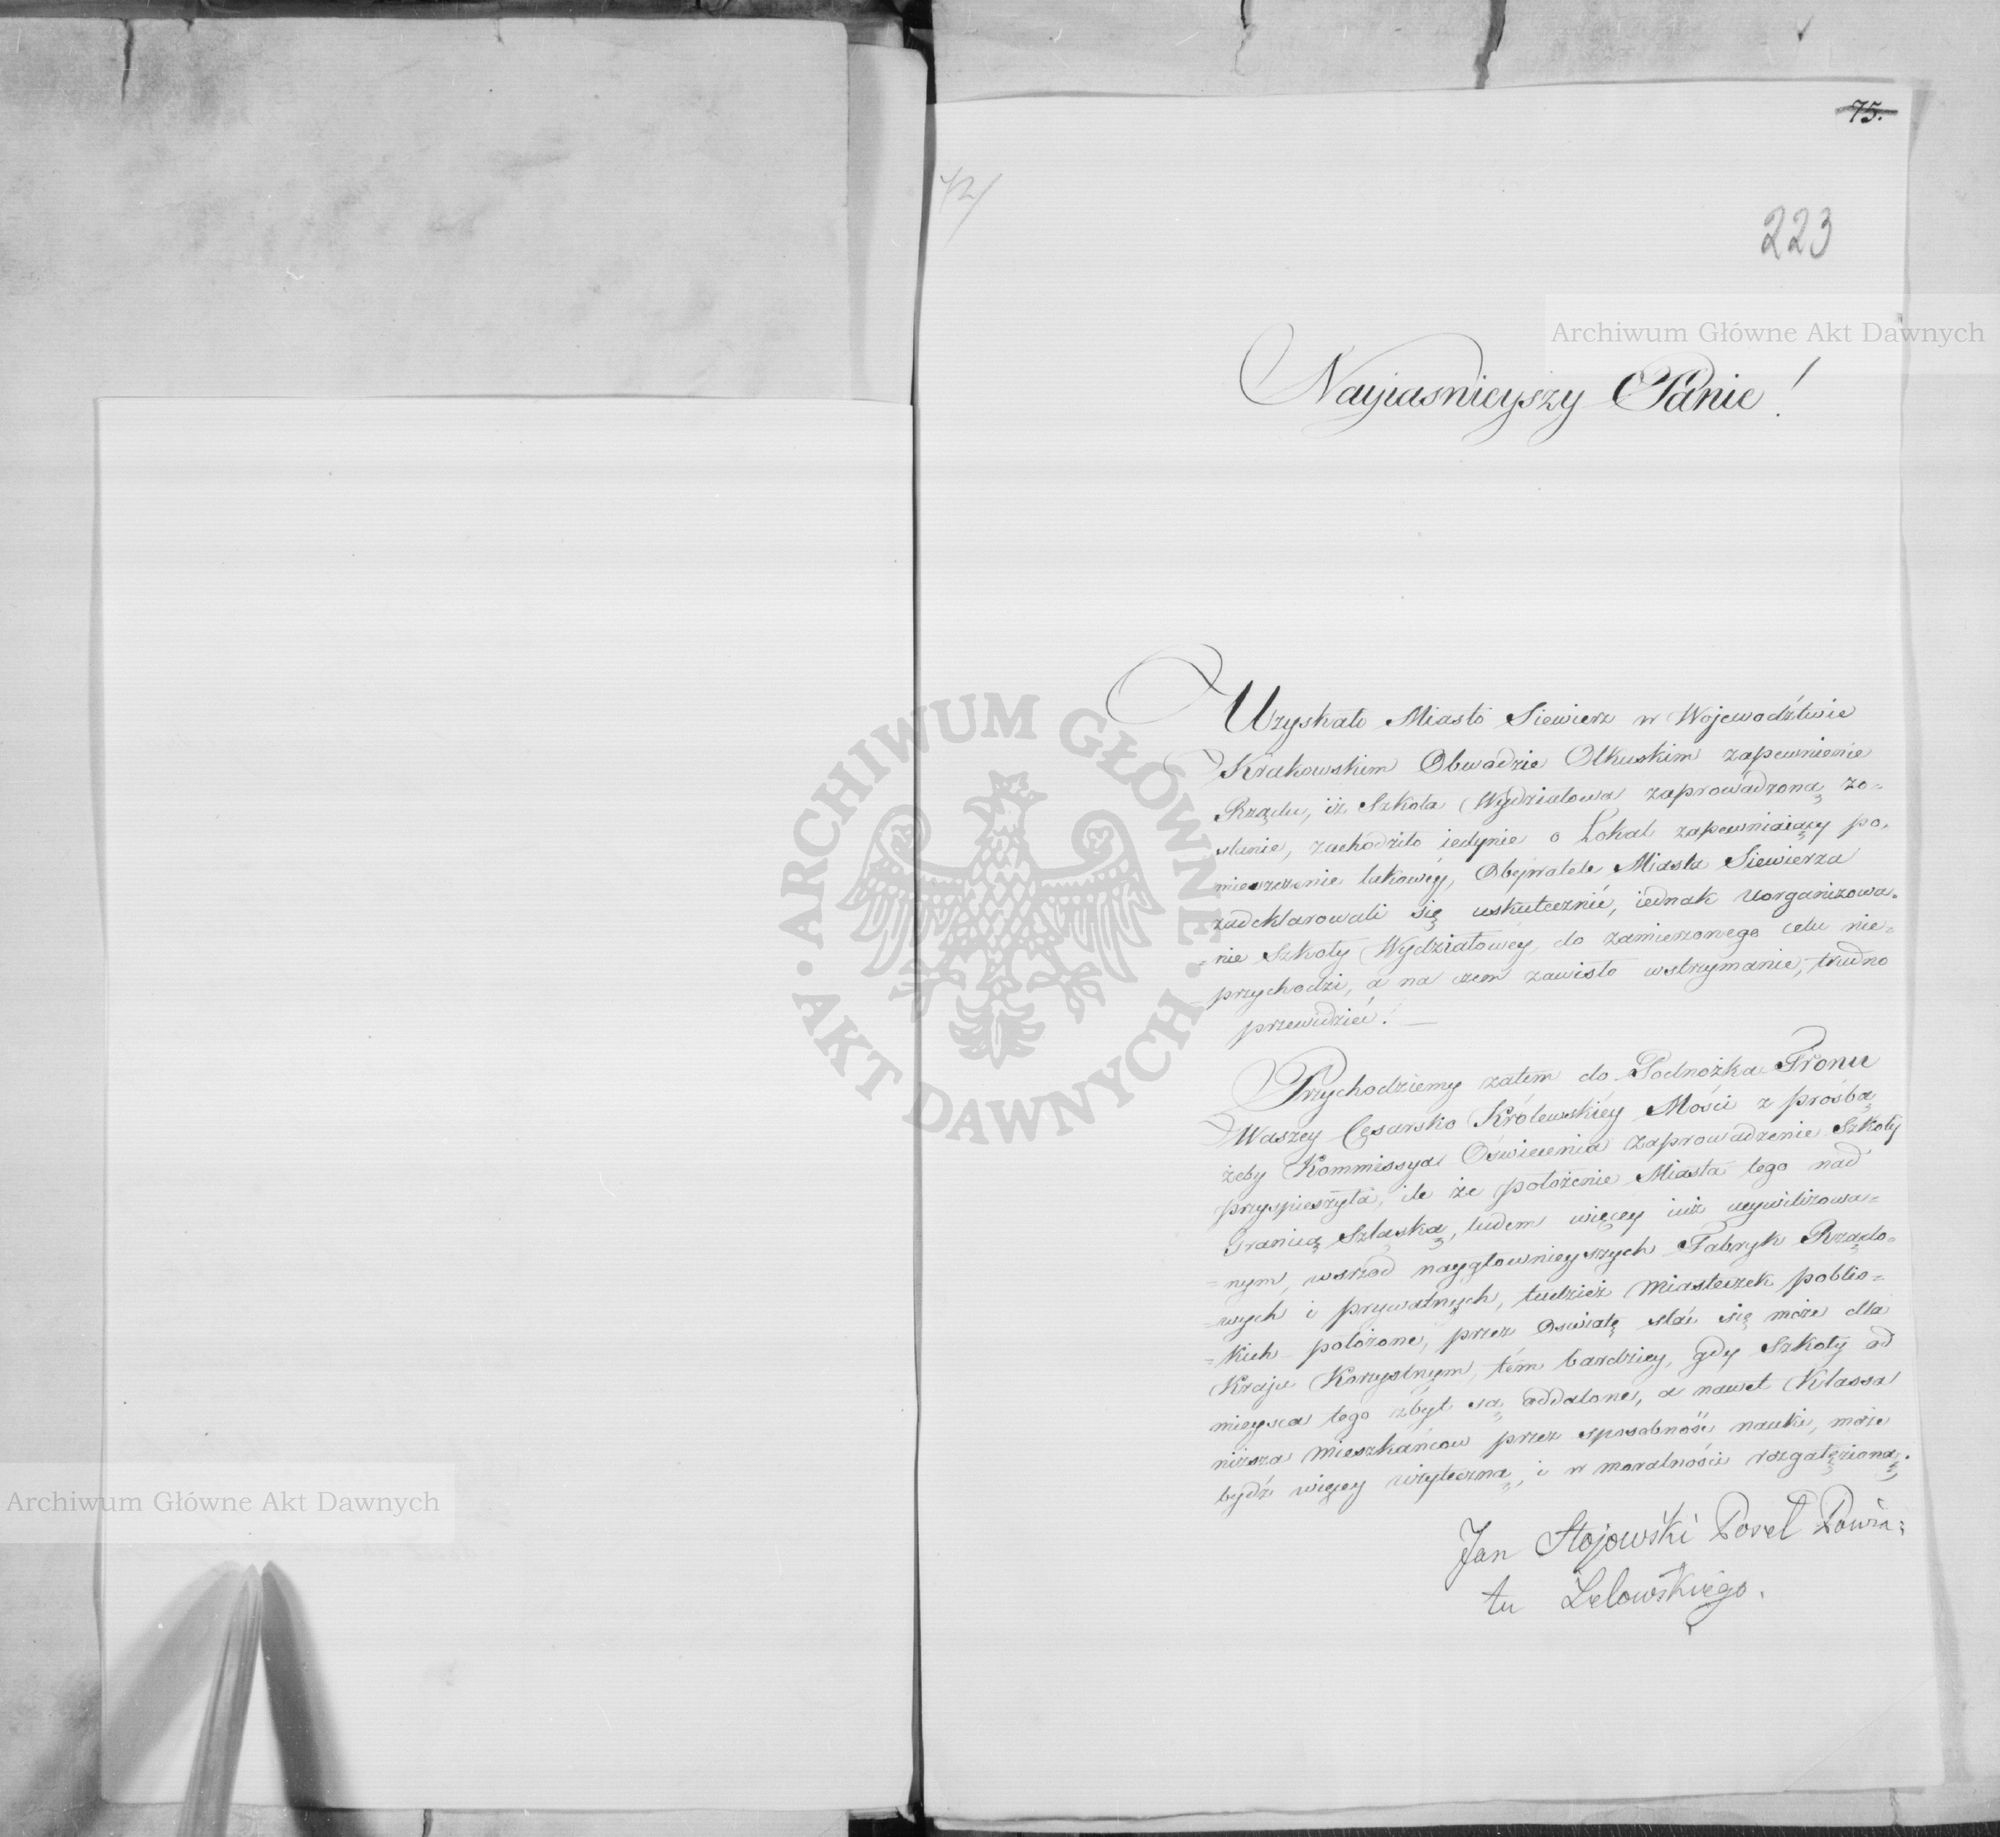 75.
72/
223
Archiwum Główne Akt Dawnych
Nayiasnieyszy Panie!
Uzyskało Miasto Siewierz w Wojewodźtwie
Krakowskim Obwodzie Olkuskim zapewnienie
Rządu, iż Szkoła Wydziałowa zaprowadzoną zo-
stanie, zachodziło iedynie o Lokal zapewniaiący po-
mieszczenie takowéy, Obywatele Miasta Siewierza
zadeklarowali się uskutecznić, iednak uorganizowa-
=nie Szkoły Wydziałowéy, do zamierzonego celu nie=
=przychodzi, a na czem zawisło wstrzymanie, trudno
przewidzieć! —
Przychodziemy zatem do Podnóżka Tronu
Waszey Cesarsko Królewskiéy Mości z prośbą
żeby Kommissya Oświecenia zaprowadzenie Szkoły
przyspieszyła, ile że położenie Miasta tego nad
Granicą Szląską, ludem więcey iuż cywilizowa=
=nym, wsrzód naygłownieyszych Fabryk Rządo=
=wych i prywatnych, tudzież Miasteczek poblis=
=kich położone, przez Oswiatę stać się może dla
Kraju Korzystnym, tém bardziey, gdy Szkoły od
mieysca tego zbyt są oddalone, a nawet Klassa
niższa Mieszkańcow przez sposobność nauki, może
bydź więcey użyteczną, i w moralności rozgałęzioną.
Jan Stojowski Poseł Powia=
tu Lelowskiego.
ARCHIWUM GŁÓWNE • AKT DAWNYCH •
Archiwum Główne Akt Dawnych